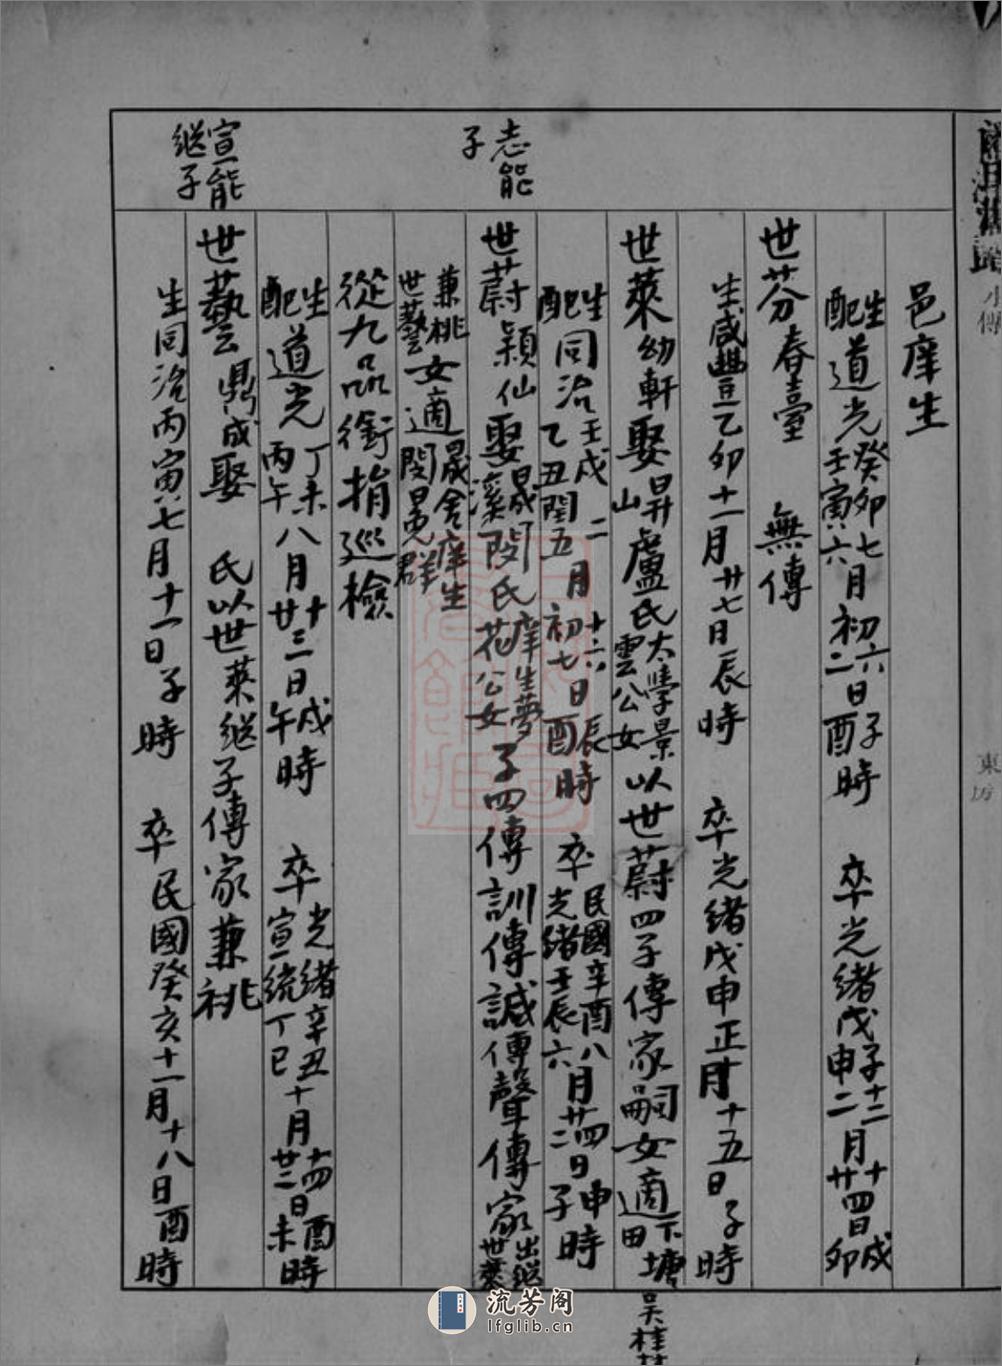 小傳
東坊
邑庠生
生配道光癸卯壬寅七六月初六二日子酉時 卒光緒戊子戊申十二二月十四廿四日戌卯
世芬春臺 無傳
生咸豐乙卯十一月廿七日辰時 卒光緒戊申正月十五日子時
志能子
世萊幼軒娶昇山盧氏太學景雲公女以世蔚四子傳家嗣女適下塘田吳桂
生配同治壬戌乙丑二閏五月十六初七日辰酉時 卒民國辛酉光緒壬辰八六月廿四廿二日申子時
世蔚穎仙娶晟溪閔氏庠生夢花公女子四傳訓傳誠傳聲傳家出繼世萊
兼祧世藝女適晟舍庠生閔冕群
從九品銜捐巡檢
生配道光丁未丙午八月十廿三二日戌午時 卒光緒辛丑宣統丁巳十月十四廿二日酉未時
宣能繼子
世藝鼎成娶 氏以世萊繼子傳家兼祧
生同治丙寅七月十一日子時 卒民國癸亥十一月十八日酉時
流芳阁
lfglib.cn